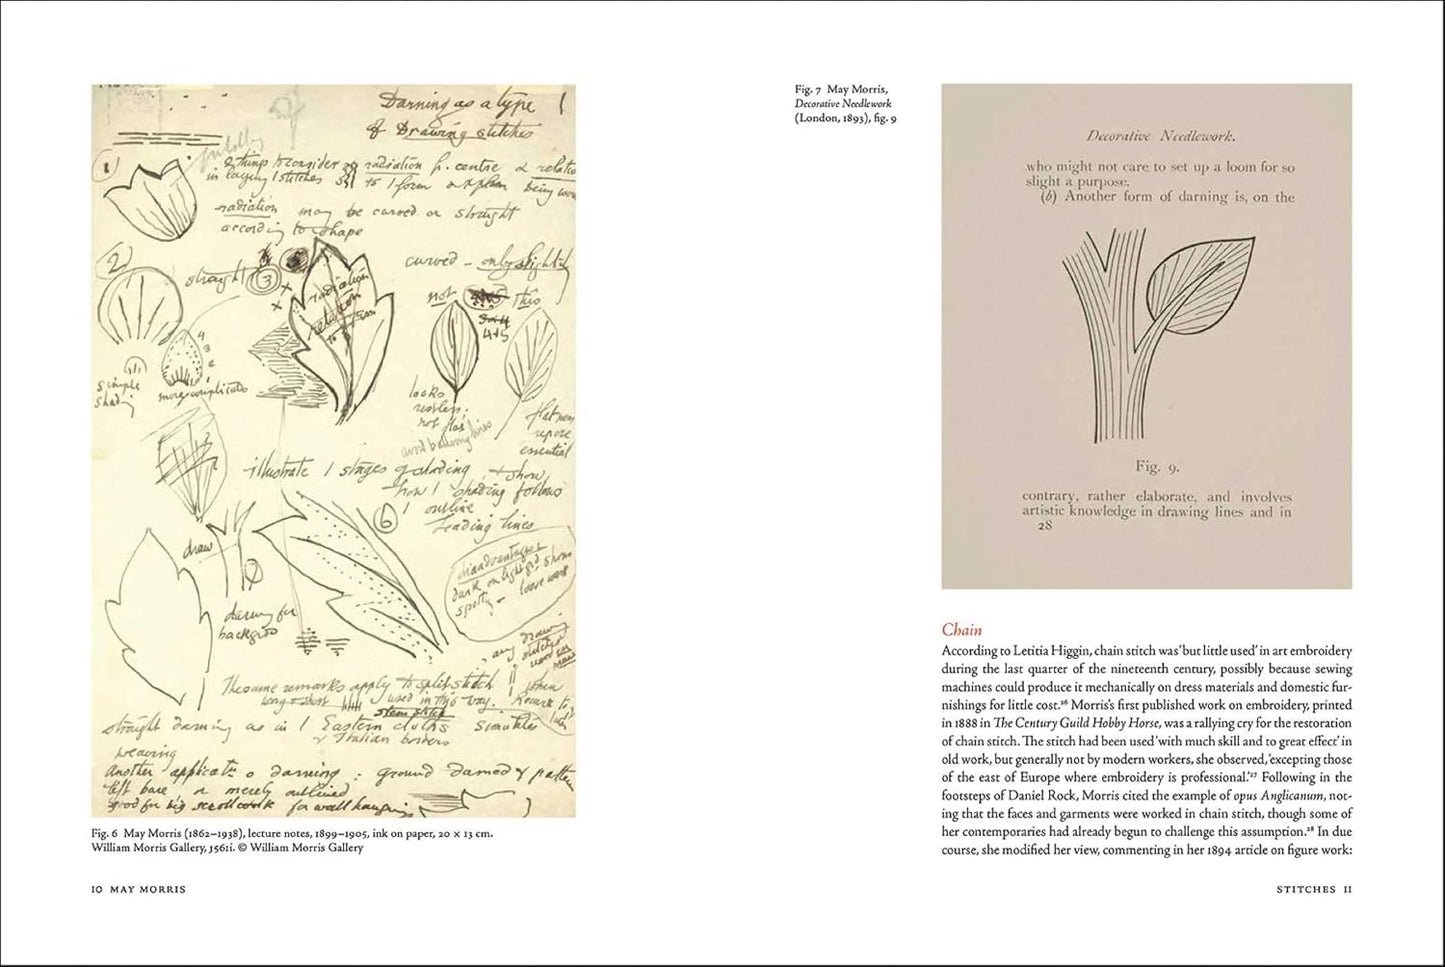 Darning as a type 1
of Drawing stitches
1
2 things to consider radiation fr. centre & relation
in laying stitches to form being
radiation may be curved or straight
according to shape
2
straight 3
curved - only slightly
radiation
relation
not this
4+5
4
simple
shading
more complicated
looks
restless.
not flat
avoid
flatness
repose
essential
illustrate stages of shading + show
how shading follows
outline
leading lines
6
draw
disadvantages
dark on light shows
spotty - loose work
darning for
backgrod
any drawing
The same remarks apply to split stitch when
long & short used in this way.
stem stitch
straight darning as in Eastern cloths simulates
& Italian borders
weaving
Another applicatn o darning : ground darned & pattern
left bare or merely outlined
good for big scrollwork for wall hanging
Fig. 6 May Morris (1862–1938), lecture notes, 1899–1905, ink on paper, 20 × 13 cm.
William Morris Gallery, J561i. © William Morris Gallery
10 MAY MORRIS
Fig. 7 May Morris,
Decorative Needlework
(London, 1893), fig. 9
Decorative Needlework.
who might not care to set up a loom for so
slight a purpose.
(b) Another form of darning is, on the
Fig. 9.
contrary, rather elaborate, and involves
artistic knowledge in drawing lines and in
28
Chain
According to Letitia Higgin, chain stitch was 'but little used' in art embroidery
during the last quarter of the nineteenth century, possibly because sewing
machines could produce it mechanically on dress materials and domestic fur-
nishings for little cost.²⁶ Morris's first published work on embroidery, printed
in 1888 in The Century Guild Hobby Horse, was a rallying cry for the restoration
of chain stitch. The stitch had been used 'with much skill and to great effect' in
old work, but generally not by modern workers, she observed, 'excepting those
of the east of Europe where embroidery is professional.'²⁷ Following in the
footsteps of Daniel Rock, Morris cited the example of opus Anglicanum, not-
ing that the faces and garments were worked in chain stitch, though some of
her contemporaries had already begun to challenge this assumption.²⁸ In due
course, she modified her view, commenting in her 1894 article on figure work:
STITCHES 11